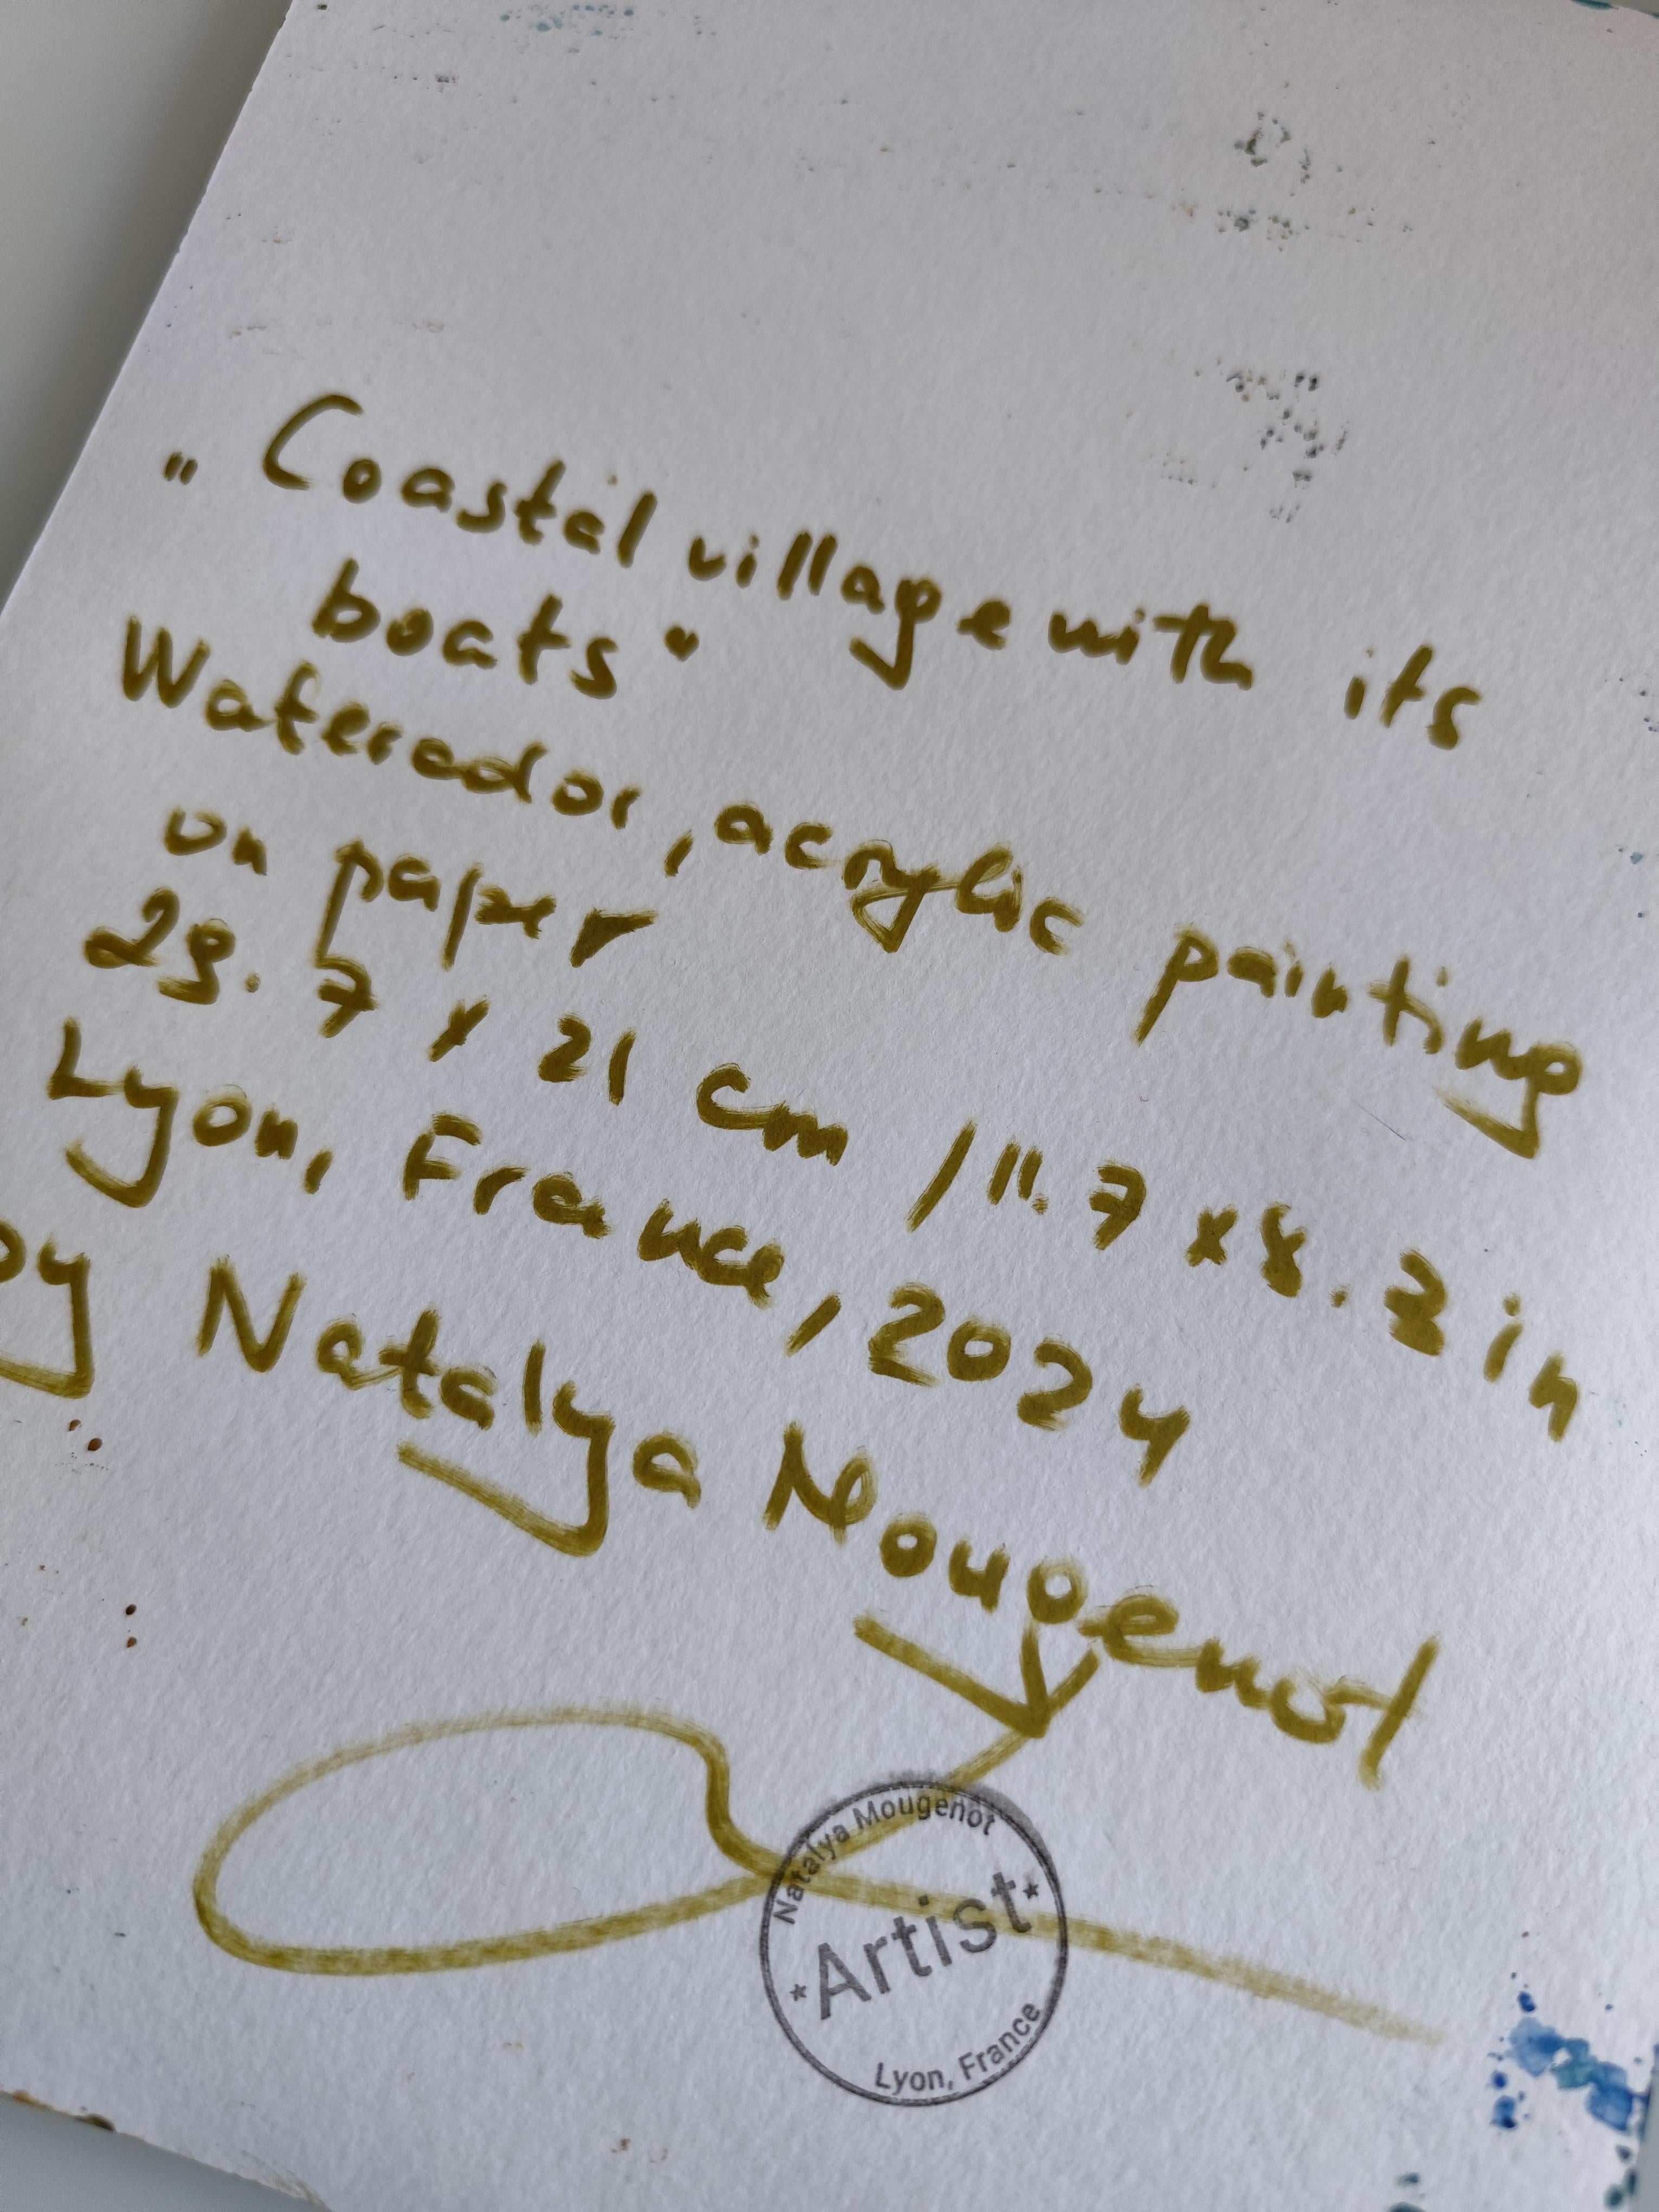 "Coastal village with its
boats"
Watercolor, acrylic painting
on paper
29.7 x 21 cm / 11.7 x 8.3 in
Lyon, France, 2024
by Natalya Mougenot
Natalya Mougenot
Artist
Lyon, France